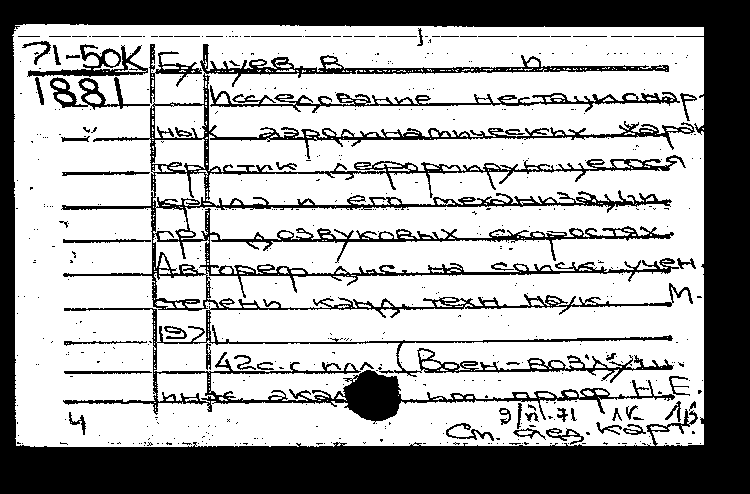 71-50К
1881
Бушуев, В п
Исследование нестационар-
ных аэродинамических харак
теристик деформирующегося
крыла и его механизации
при дозвуковых скоростях.
Автореф. дис. на соиск. учен.
степени канд. техн. наук. М.
1971.
42с. с илл. (Воен.-воздуш.
инж. акад. им. проф. Н.Е.
4 9/VI.71 1К
См. след. карт.